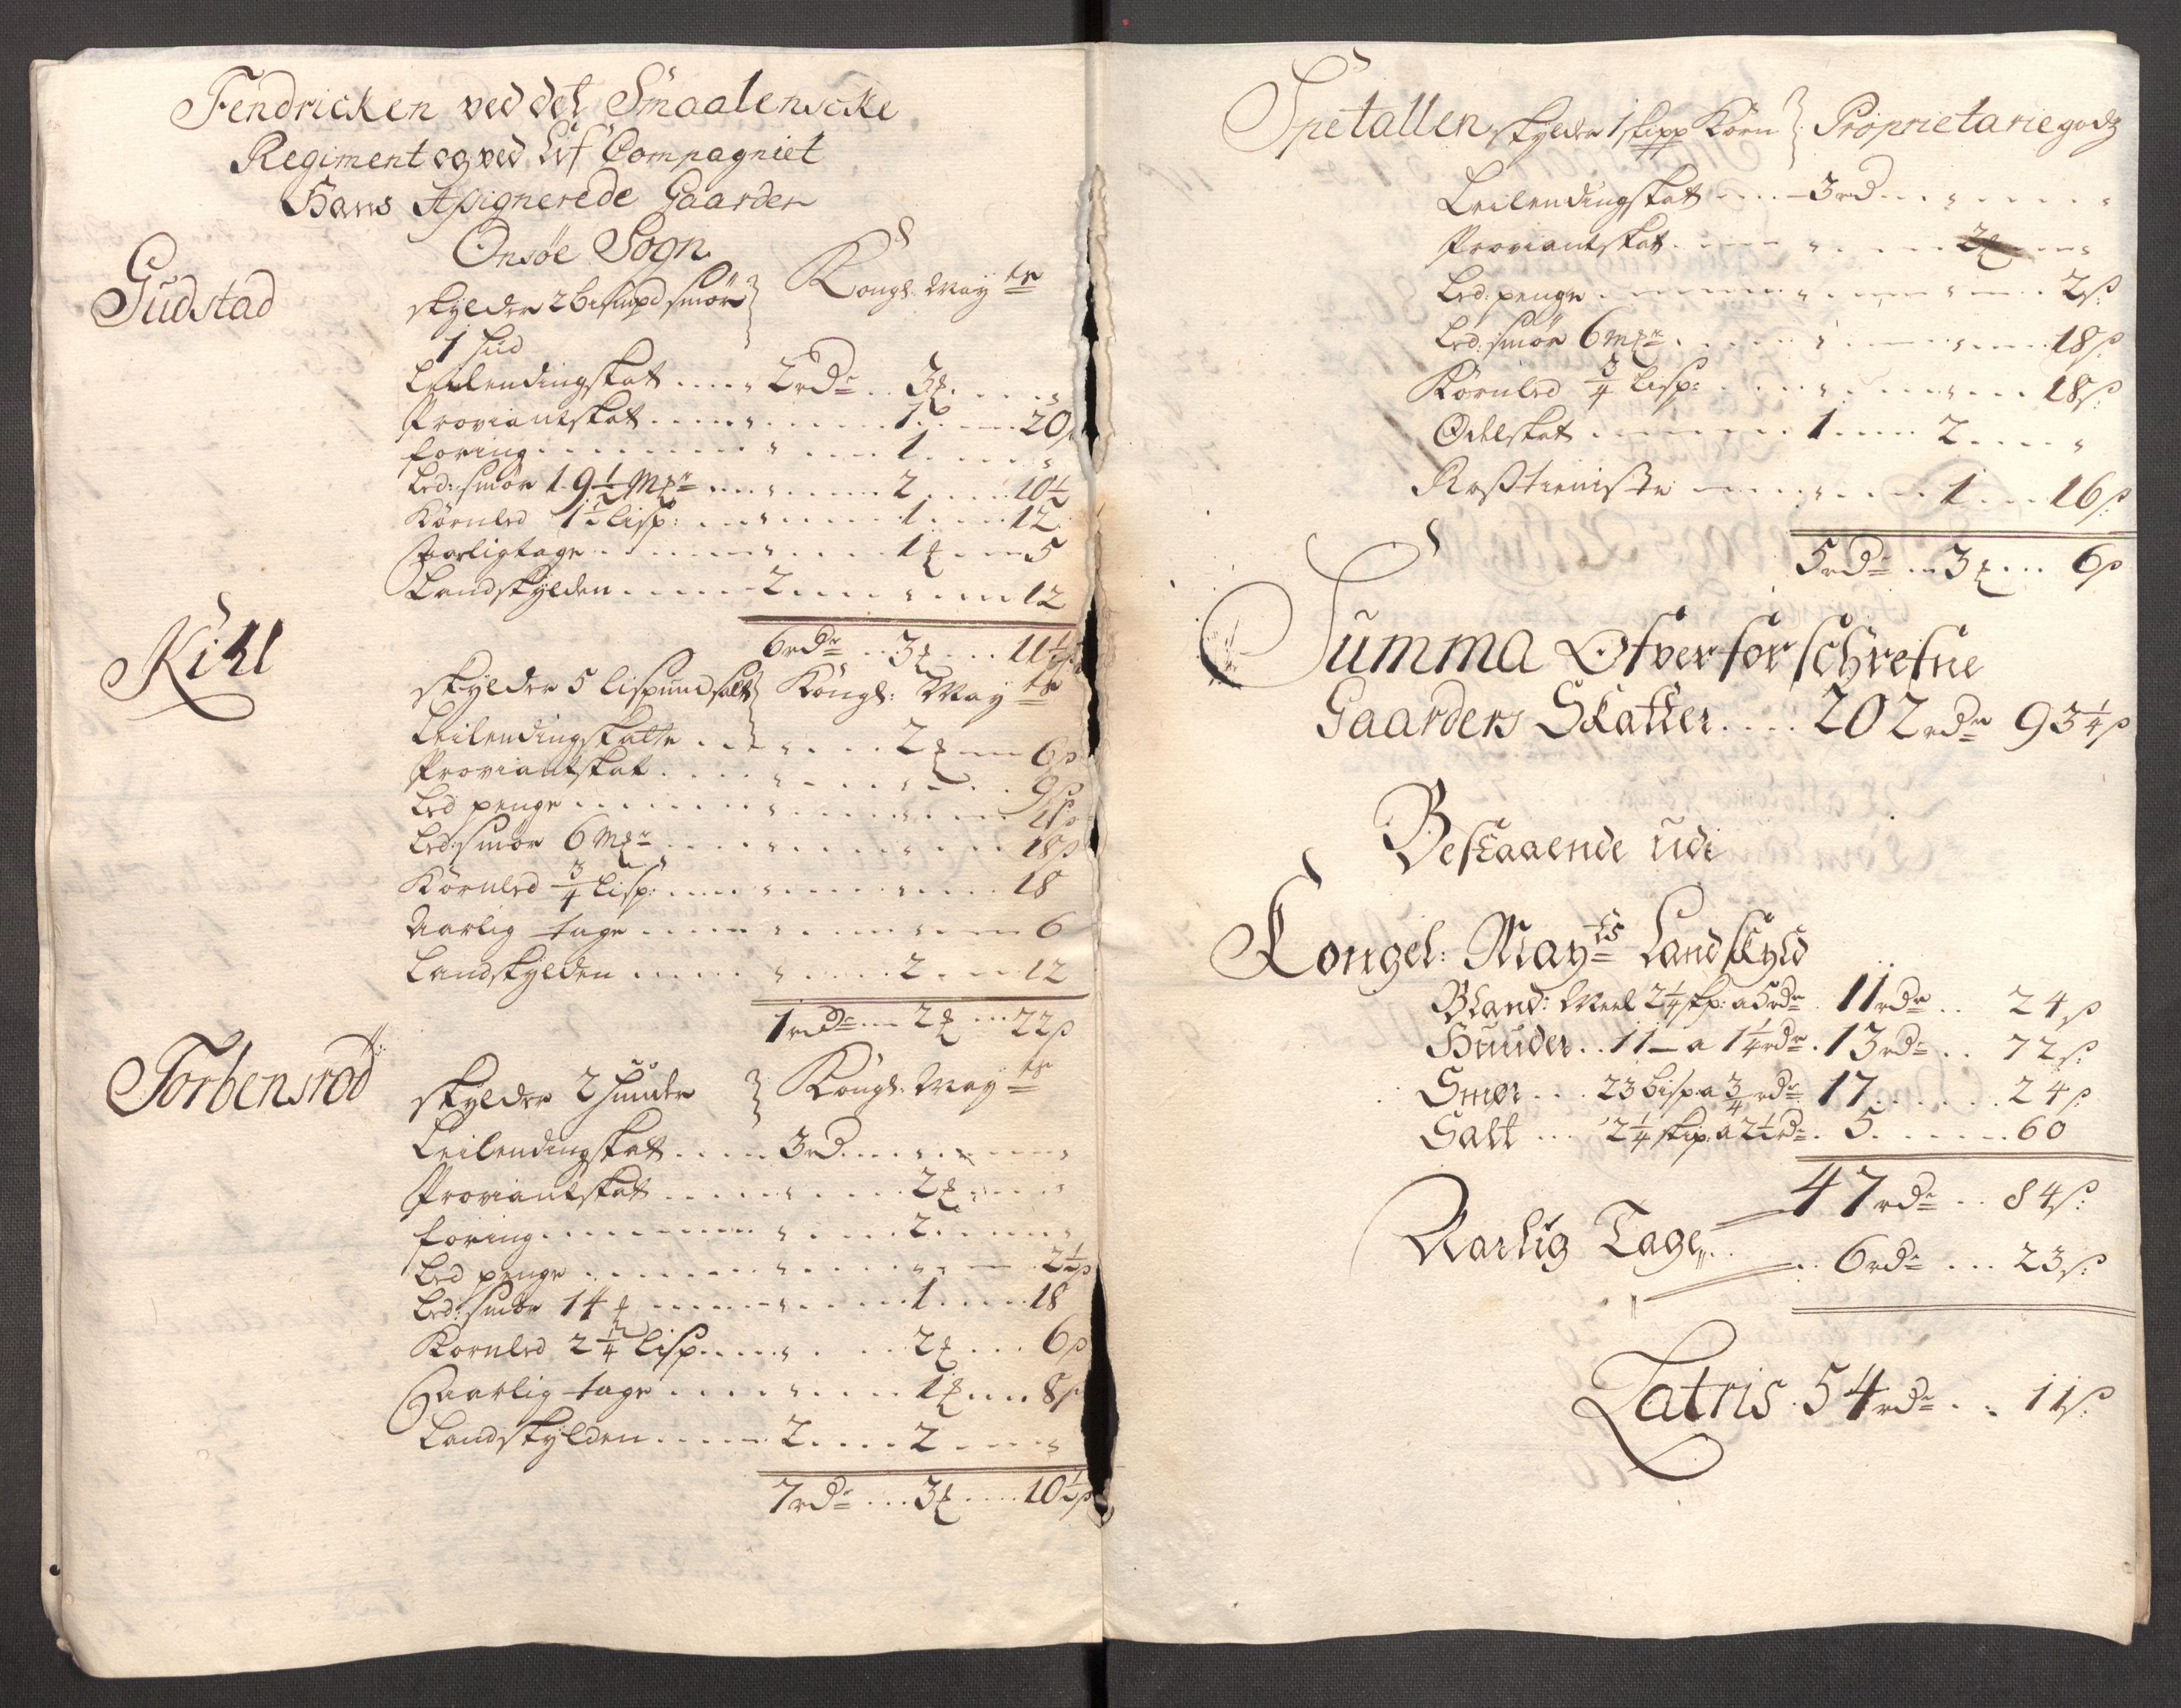 Fendricken ved det Smaalenscke
Regiment og ved Lif Compagniet
Hans Assignerede Gaarder
Onsøe Sogn
Gudstad
skylder 2 bismpd smør } Kongl: May ts
1 hud
Leilendingskat .... 2 rdr .. 3 ß ....
Proviantskat .... 1 .... 20 ß
foring .... 1 ....
Led: smør 19 1/2 Mkr .... 2 .... 10 1/2
Kornled 1 1/2 lisp: .... 1 .... 12
Aarligtage .... 1 .... 5
Landskylden .... 2 .... 12
6 rdr .. 3 .. 11 1/2 ß
Kihl
skylder 5 lispund salt } Kongl: May ts
Leilendingskatte .... 2 .... 6 ß
Proviantskat .... 9 ß
Led penge ....
Led: smør 6 Mkr .... 18 ß
Kornled 3/4 lisp: .... 18
Aarlig tage .... 6
Landskylden .... 2 .... 12
1 rdr ... 2 ... 22 ß
Torbensrød
skylder 2 huuder } Kongl: May ts
Leilendingskat .... 3 rd ....
Proviantskat .... 2 ....
foring .... 2 ....
Led penge .... 2 1/2 ß
Led: smør 14 .... 1 .... 18
Kornled 2 1/4 lisp .... 2 ... 6 ß
Aarlig tage .... 1 .... 8 ß
Landskylden .... 2 .... 2 ....
7 rdr ... 3 .... 10 1/2 ß
Spetallen skylder 1 skipp Korn } Proprietarie godz
Leilendingskat .... 3 rd ....
Proviantskat .... 2 ....
Led: penge .... 2 ß
Led: smør 6 Mkr .... 18 ß
Kornled 3/4 lisp: .... 18 ß
Odelskat .... 1 .... 2 ....
Rosstieniste .... 1 ... 16 ß
5 rdr ... 3 ... 6 ß
Summa Ofverforschrefne
Gaarders Skatter .... 202 rdr 93 1/4 ß
Bestaaende udi
Kongel: May ts Landskyld
Bland: Meel 2 1/4 skp: a 5 rdr . 11 rdr .. 24 ß
Huuder .. 11 — a 1 1/4 rdr . 13 rdr .. 72 ß
Smør ... 23 bisp: a 3/4 rdr 17 ...... 24 ß
Salt ... 2 1/4 skip: a 2 1/2 rdr . 5 ...... 60
47 rdr .. 84 ß
Aarlig Tage .... 6 rdr ... 23 ß
Latris . 54 rdr .. 11 ß